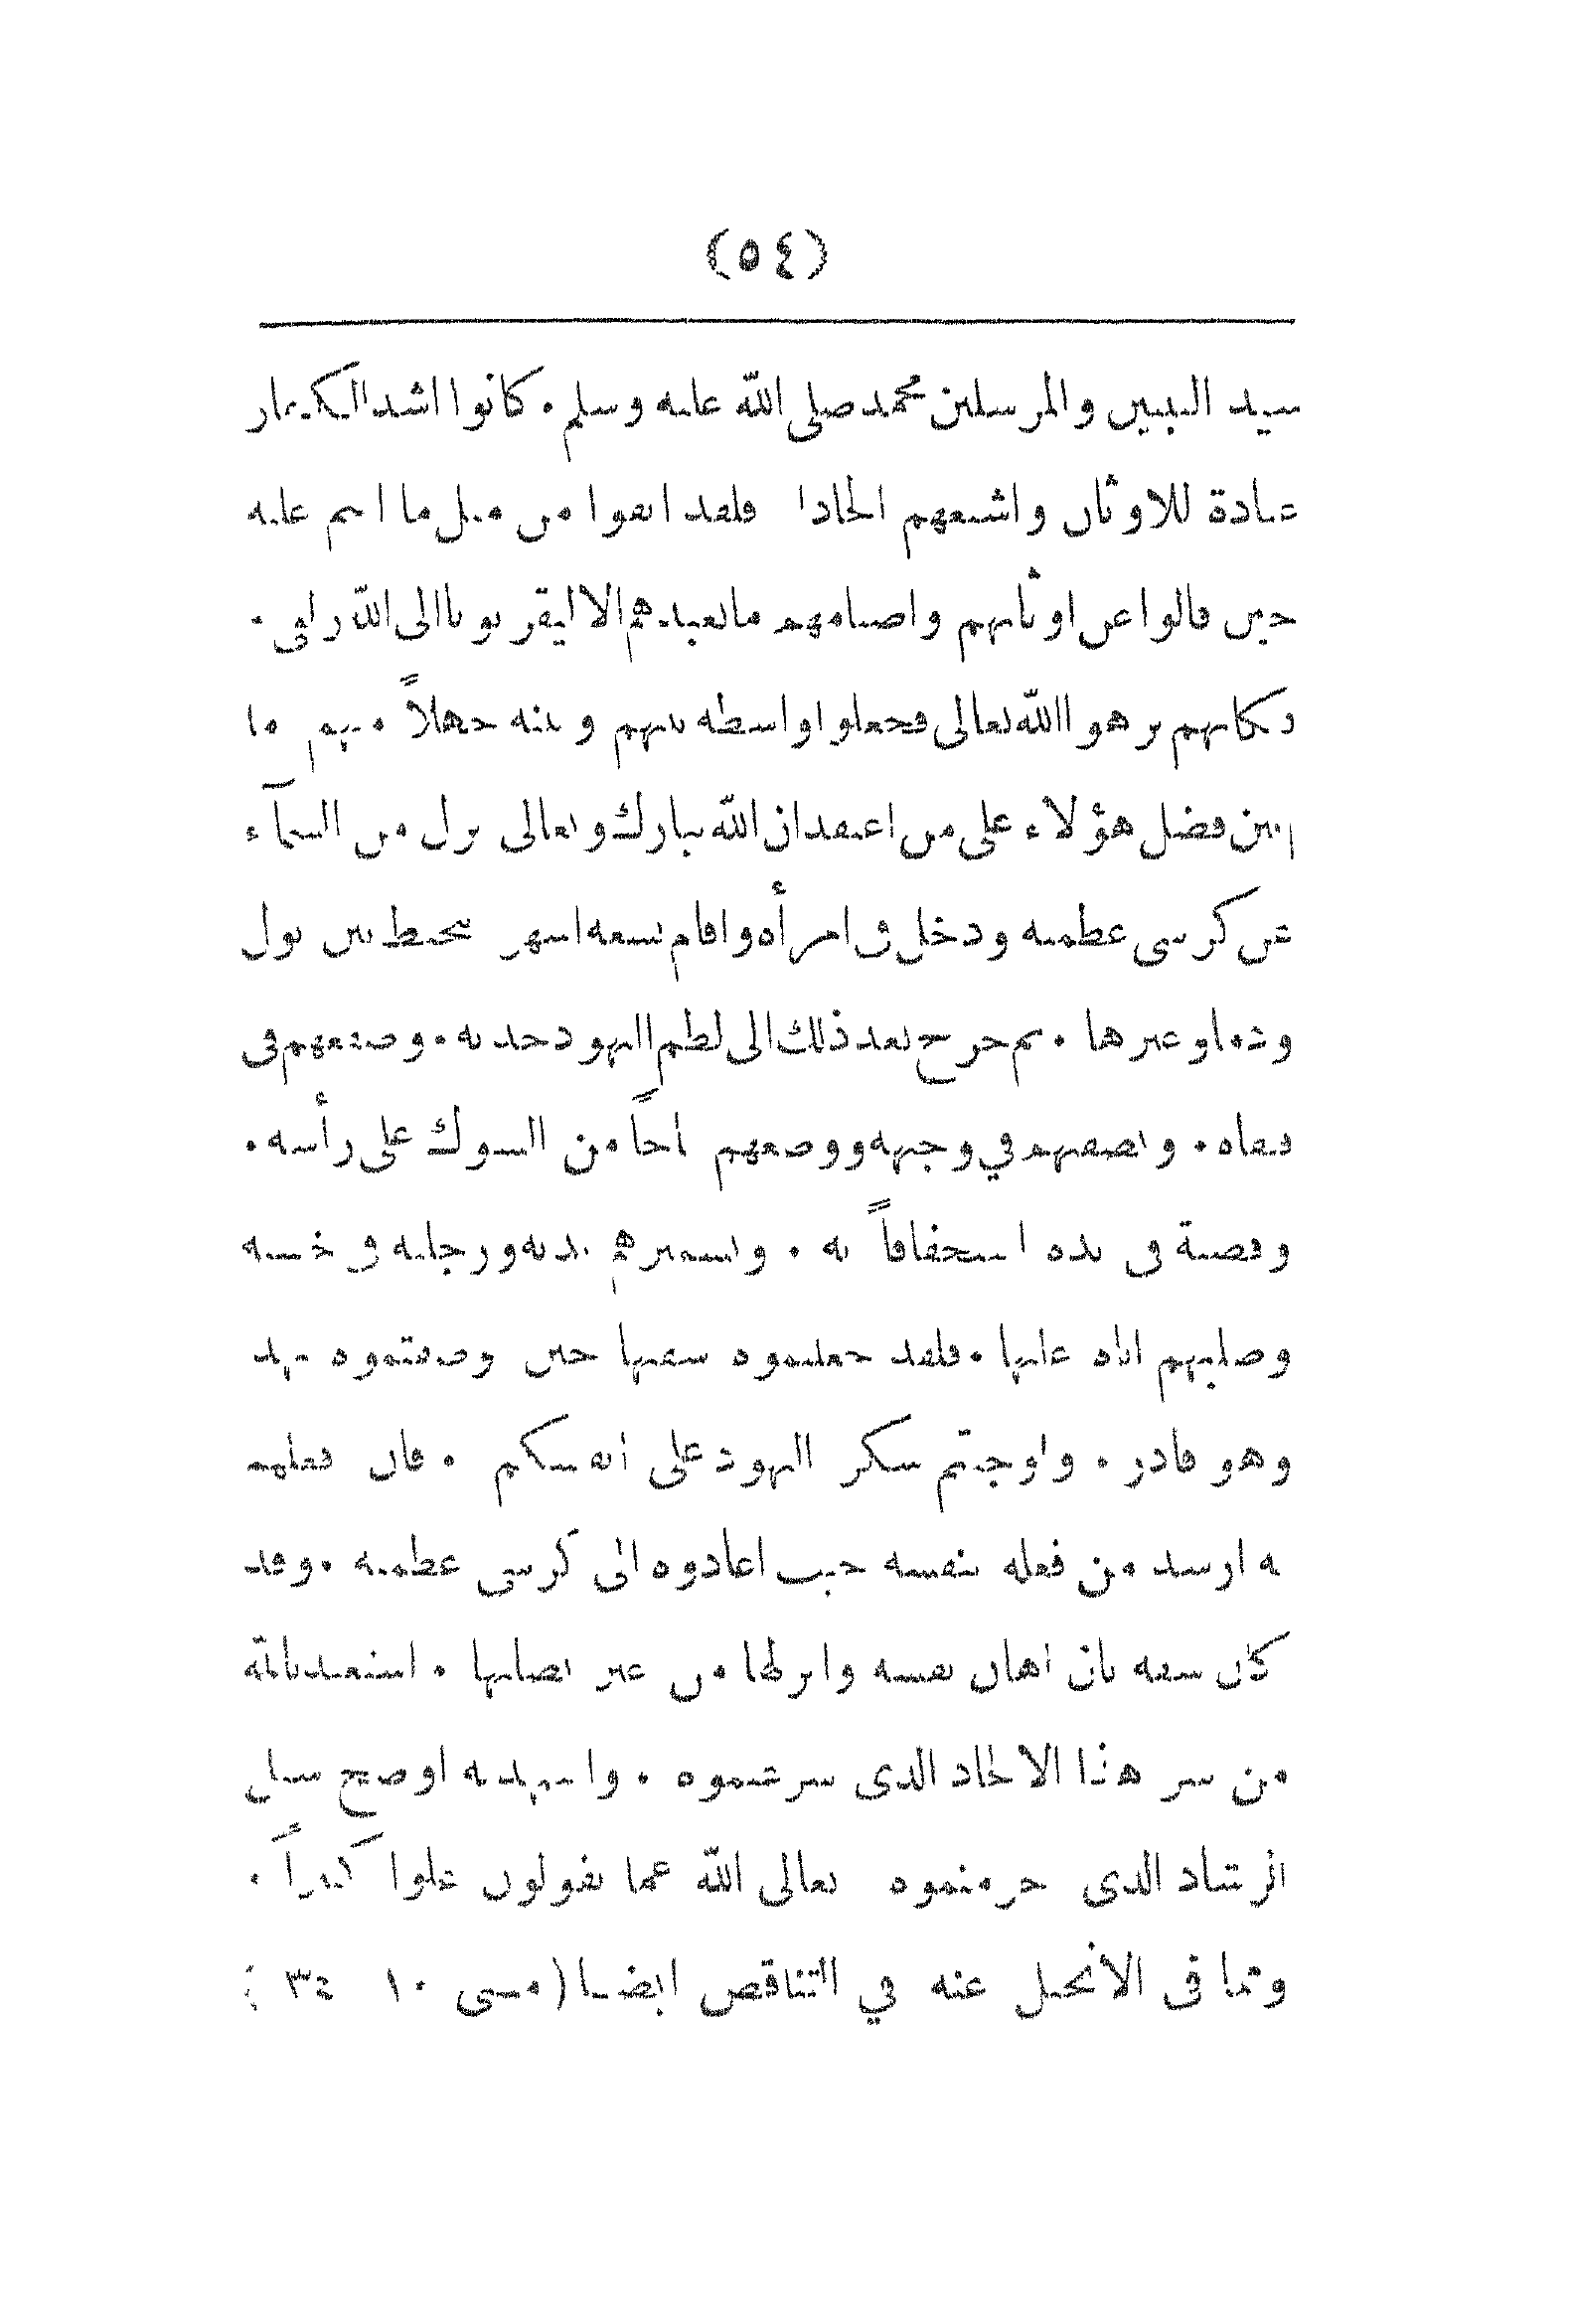 (٥٤)
سيد النبيين والمرسلين محمد صلى الله عليه وسلم . كانوا اشد الكفار
عبادة للاوثان واشنعهم الحادا فلقد انفوا من مثل ما انتم عليه
حين قالوا عن اوثانهم واصنامهم ما نعبدهم الا ليقربونا الى الله زلفى .
فكانهم نزهوا الله تعالى فجعلوا واسطة بينهم و بينه جهلاً منهم فما
ابين فضل هؤلاء على من اعتقد ان الله تبارك وتعالى نزل من السمآء
عن كرسى عظمته ودخل فى امرأة واقام تسعة اشهر تحبط بين بول
ودما وغيرها . ثم خرج بعد ذلك الى لطم اليهود خديه . وصفعهم فى
قفاه . وبصقهم في وجهه ووضعهم تاجاً من الشوك على رأسه .
وقصبة فى يده استخفافاً به . وتسميرهم يديه ورجليه فى خشبة
وصلبهم اياه عليها . فلقد جعلتموه سفيها حين وصفتموه بهذ
وهو قادر . واوجبتم شكر اليهود على انفسكم . فان فعلهم
به ارشد من فعله بنفسه حيث اعادوه الى كرسى عظمته . وقد
كان سفه بان اهان نفسه وانزلها من غير نصابها . استعيذ بالله
من شر هذا الالحاد الذى شرعتموه . واستهديه اوضح سبل
الرشاد الذى حرمتموه تعالى الله عما يقولون علوا كبيراً .
ومما فى الانجيل عنه في التناقض ايضا ( متى ١٠ ٣٤ )